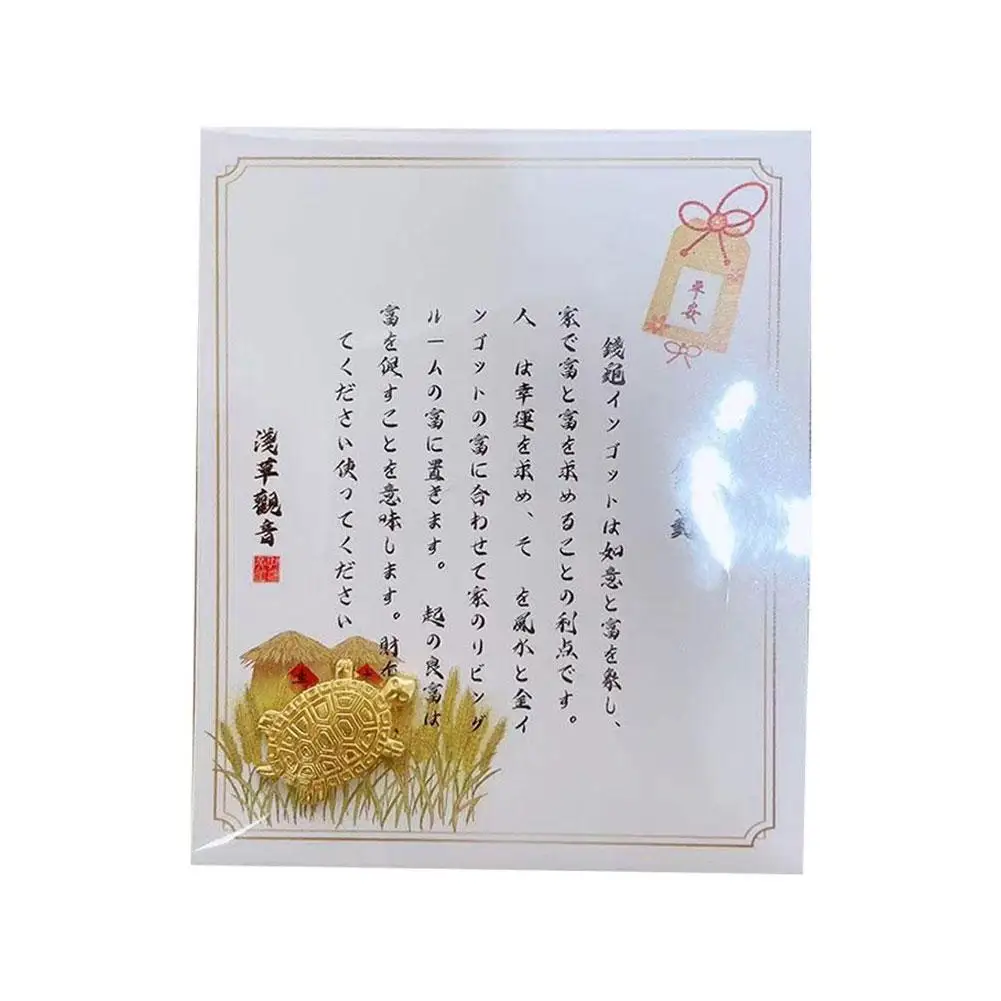 平安
銭亀インゴットは如意と富を象し、
家で富と富を求めることの利点です。
人 は幸運を求め、そ を風水と金イ
ンゴットの富に合わせて家のリビング
ルームの富に置きます。 起の良富は
富を促すことを意味します。財布
てください使ってください
淺草觀音